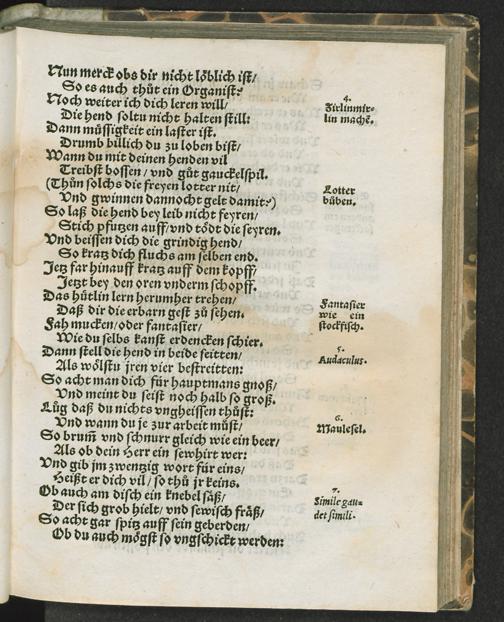 Nun merck obs dir nicht löblich ist/
So es auch thůt ein Organist?
Noch weiter ich dich leren will/
Die hend soltu nicht halten still:
Dann müssigkeit ein laster ist.
Drumb billich du zu loben bist/
Wann du mit deinen henden vil
Treibst bossen/ vnd gůt gauckelspil.
(Thůn solchs die freyen lotter nit/
Vnd gwinnen dannocht gelt damit?)
So laß die hend bey leib nicht feyren/
Stich pfutzen auff/ vnd tödt die seyren.
Vnd beissen dich die grindig hend/
So kratz dich fluchs am selben end.
Jetz far hinauff kratz auff dem kopff/
Jetzt bey den oren vnderm schopff.
Das hůtlin lern herumher trehen/
Daß dir die erbarn gest zů sehen.
Fah mucken/ oder fantasier/
Wie du selbs kanst erdencken schier.
Dann stell die hend in beide seitten/
Als wölstu jren vier bestreitten:
So acht man dich für hauptmans gnoß/
Vnd meint du seist noch halb so groß.
Lůg daß du nichts vngheissen thůst:
Vnd wann du je zur arbeit můst/
So brum̃ vnd schnurr gleich wie ein beer/
Als ob dein Herr ein sewhirt wer:
Vnd gib jm zwenzig wort für eins/
Heißt er dich vil/ so thů jr keins.
Ob auch am disch ein knebel säß/
Der sich grob hielt/ vnd sewisch fräß/
So acht gar spitz auff sein geberden/
Ob du auch mögst so vngschickt werden:
4.
Firlinmir-
lin machē.
Lotter
bůben.
Fantasier
wie ein
stockfisch.
5.
Audaculus.
6.
Maulesel.
7.
Simile gau-
det simili.